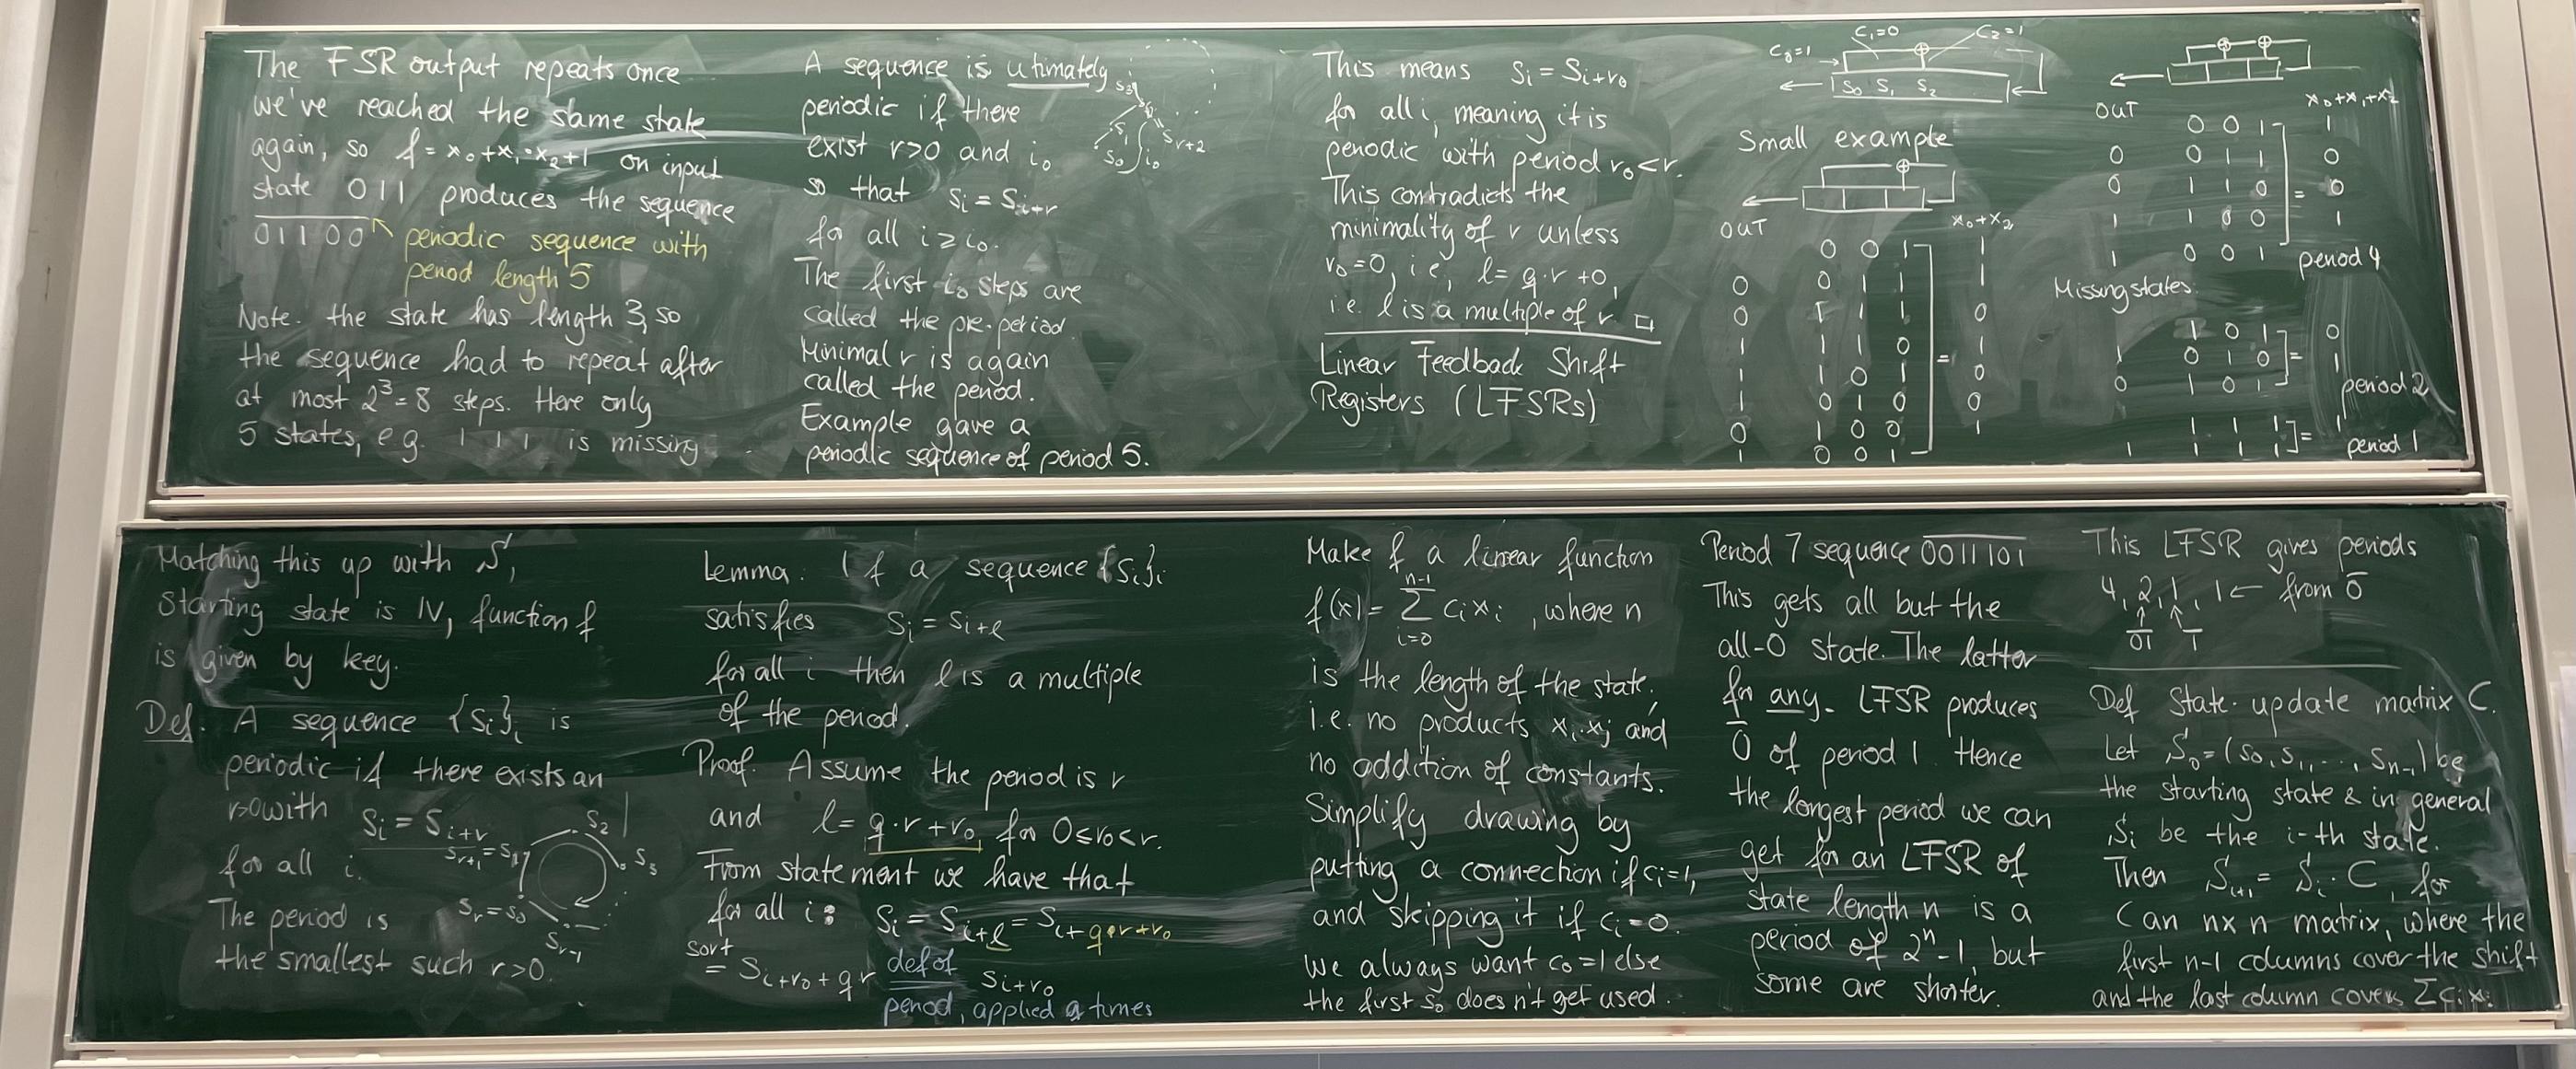 The FSR output repeats once
we've reached the same state
again, so f = x₀+x₁·x₂+1 on input
state 011 produces the sequence
01100 ↖ periodic sequence with
period length 5
Note. the state has length 3, so
the sequence had to repeat after
at most 2³=8 steps. Here only
5 states, e.g. 1 1 1 is missing
A sequence is utimately
periodic if there
exist r>0 and i₀
so that sᵢ = sᵢ₊ᵣ
for all i ≥ i₀.
The first i₀ steps are
called the pre-period
Minimal r is again
called the period.
Example gave a
periodic sequence of period 5.
s₀ s₁ s₃ i₀ sᵣ₊₂
This means sᵢ = sᵢ₊ᵣ₀
for all i, meaning it is
periodic with period r₀<r.
This contradicts the
minimality of r unless
r₀=0, i.e, l= q·r +0,
i.e. l is a multiple of r. □
Linear Feedback Shift
Registers (LFSRs)
c₀=1 c₁=0 c₂=1
s₀ s₁ s₂
Small example
OUT x₀+x₂
0 0 1 1
0 0 1 1 1
0 1 1 1 0
1 1 1 0 = 1
1 1 0 1 0
1 0 1 0 0
0 1 0 0 1
1 0 0 1
OUT x₀+x₁+x₂
0 0 1 1
0 0 1 1 0
0 1 1 0 = 0
1 1 0 0 1
1 0 0 1 period 4
Missing states.
1 0 1 0
1 0 1 0 = 1
0 1 0 1 period 2
1 1 1 = 1
1 1 1 1 period 1
Matching this up with S,
starting state is IV, function f
is given by key.
Def. A sequence {sᵢ}ᵢ is
periodic if there exists an
r>0 with sᵢ = sᵢ₊ᵣ
for all i.
The period is
the smallest such r>0.
sᵣ₊₁=s₁ s₂ s₃
sᵣ=s₀ sᵣ₋₁
Lemma. If a sequence {sᵢ}ᵢ
satisfies sᵢ = sᵢ₊ₗ
for all i then l is a multiple
of the period.
Proof. Assume the period is r
and l= q·r+r₀ for 0≤r₀<r.
From statement we have that
for all i: sᵢ = sᵢ₊ₗ = sᵢ₊q·r+r₀
sort = sᵢ₊ᵣ₀₊qr def of sᵢ₊ᵣ₀
period, applied q times
Make f a linear function
f(x)= Σᵢ₌₀ⁿ⁻¹ cᵢxᵢ, where n
is the length of the state,
i.e. no products xᵢ·xⱼ and
no addition of constants.
Simplify drawing by
putting a connection if cᵢ=1,
and skipping it if cᵢ=0.
We always want c₀=1 else
the first s₀ does n't get used.
Period 7 sequence 0011101
This gets all but the
all-0 state. The latter
for any. LFSR produces
0̄ of period 1. Hence
the longest period we can
get for an LFSR of
state length n is a
period of 2ⁿ-1, but
some are shorter.
This LFSR gives periods
4, 2, 1, 1 ← from 0̄
01 1
Def State-update matrix C.
Let S₀=(s₀,s₁,..., sₙ₋₁) be
the starting state & in general
Sᵢ be the i-th state.
Then Sᵢ₊₁= Sᵢ·C, for
C an n×n matrix, where the
first n-1 columns cover the shift
and the last column covers Σcᵢxᵢ